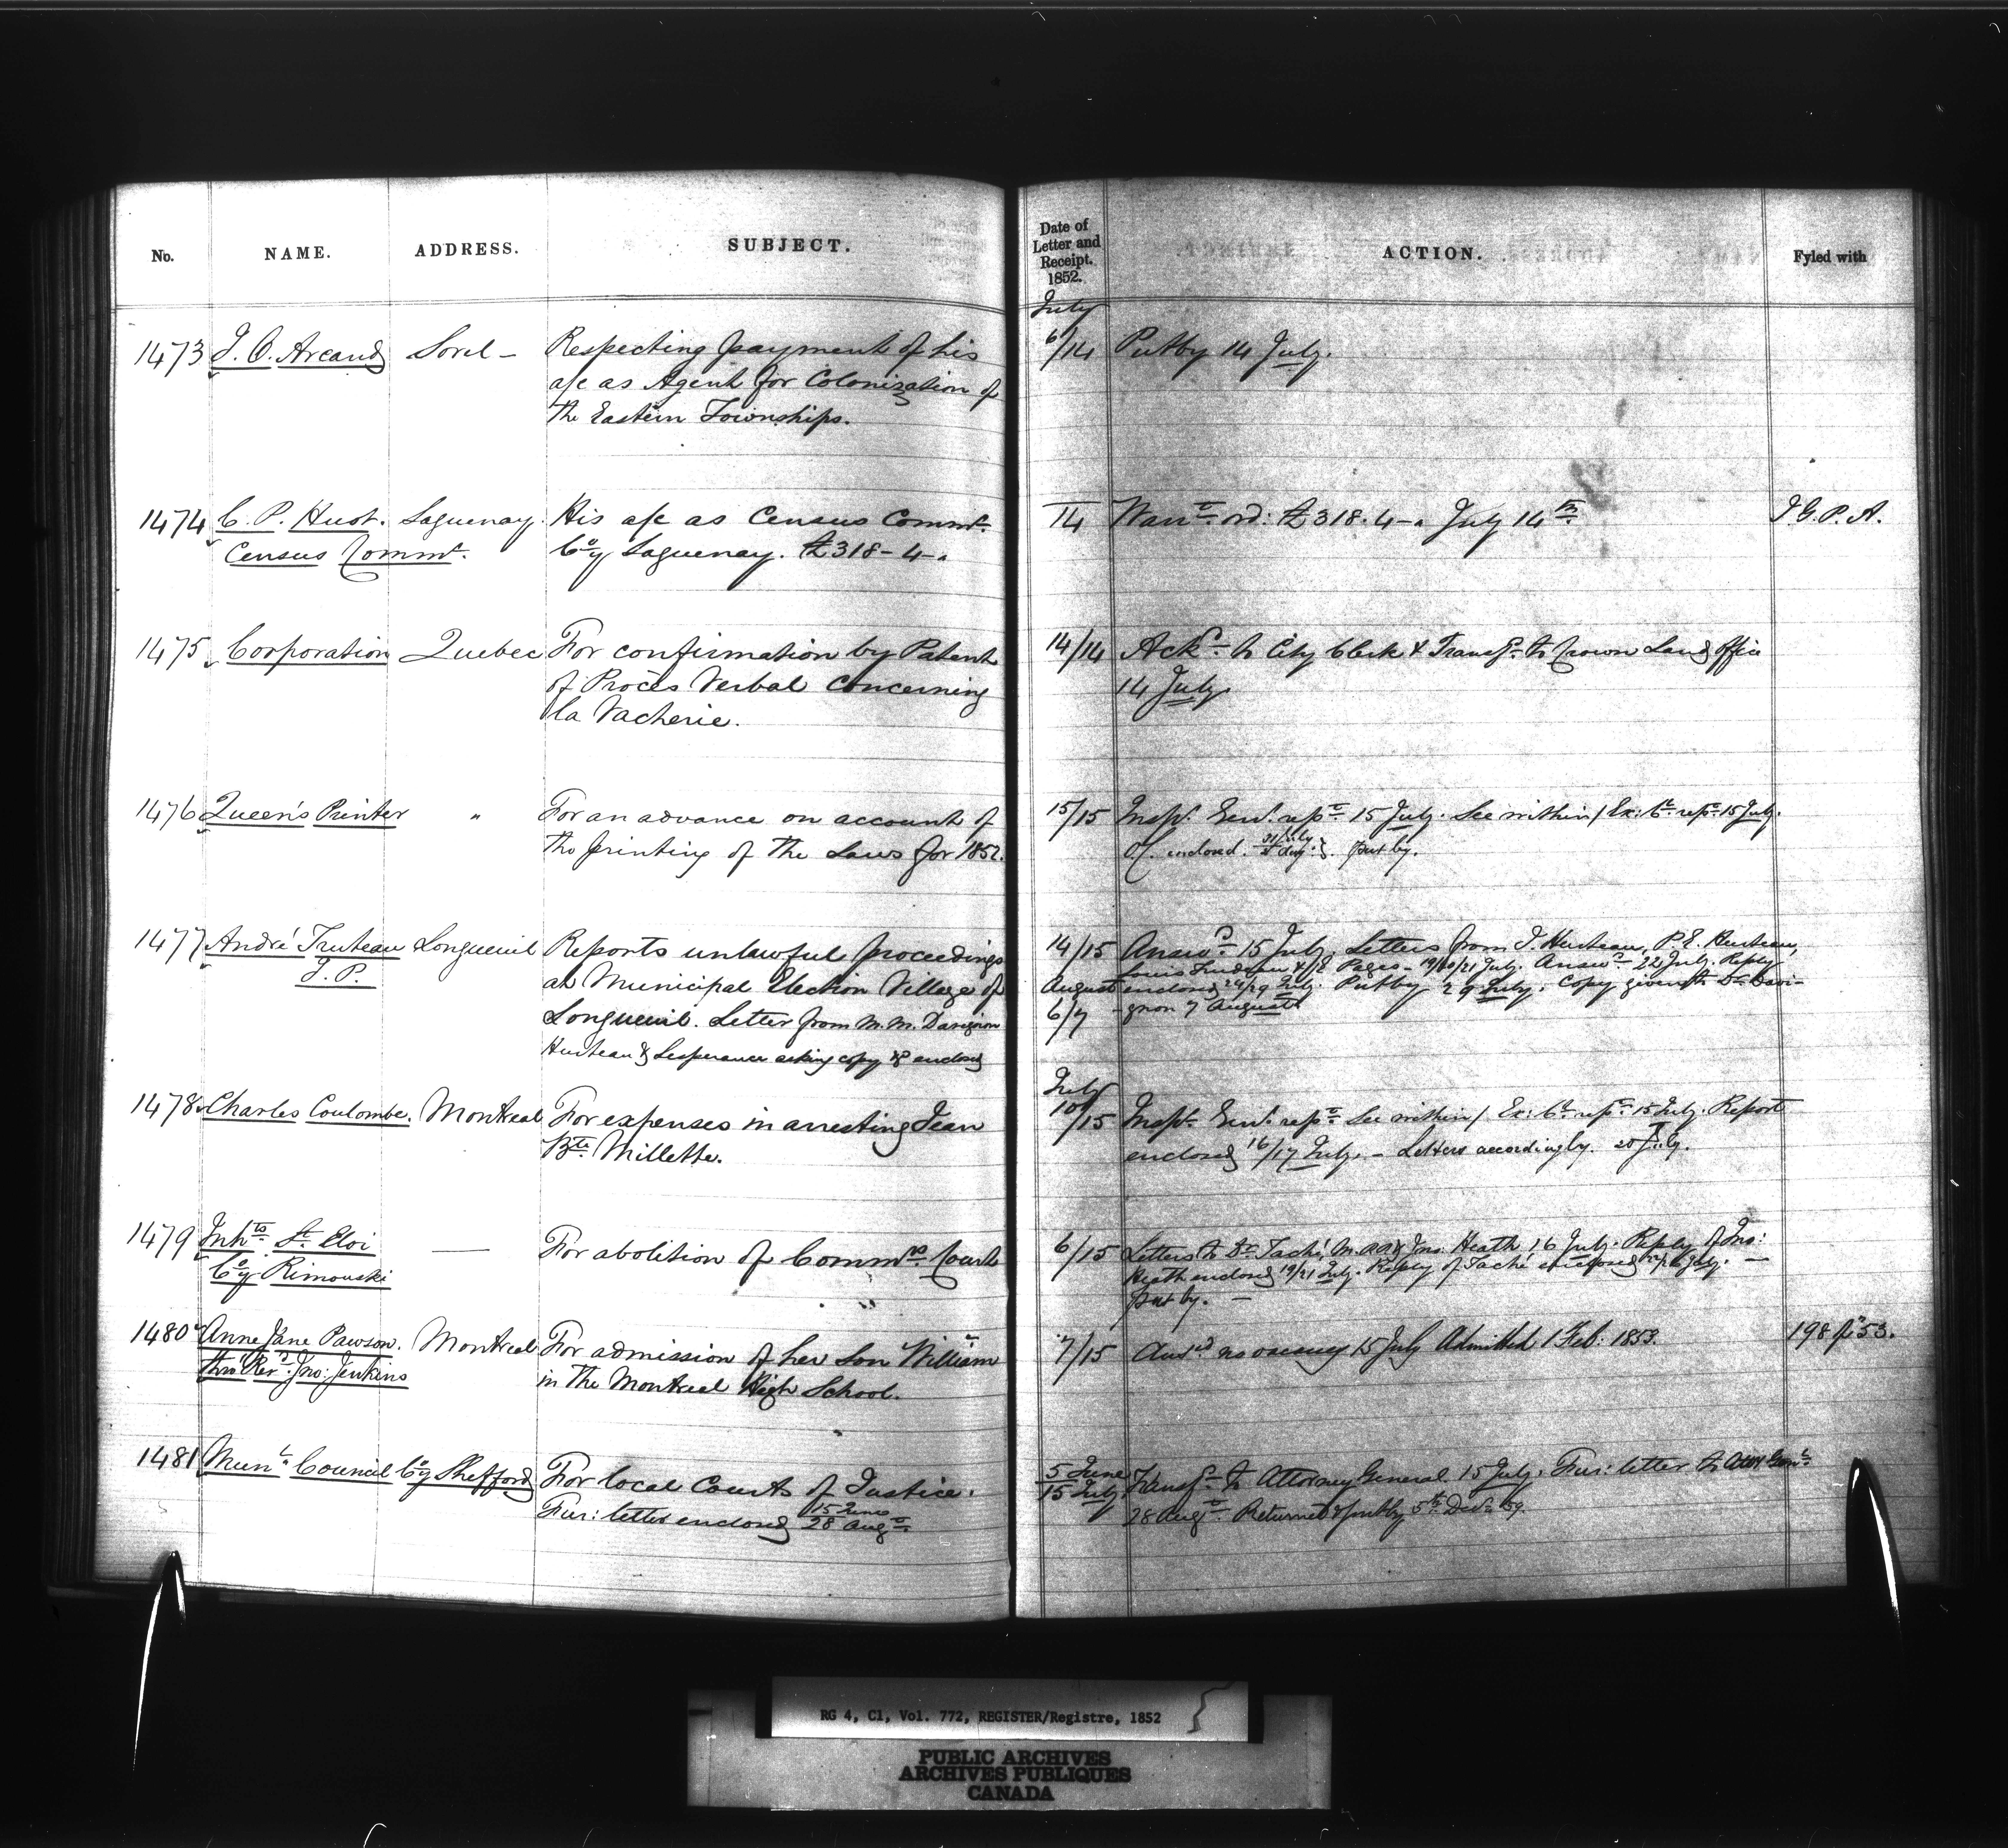 No. NAME. ADDRESS. SUBJECT. Date of Letter and Receipt. 1852. ACTION. Fyled with
July
1473 J. O. Arcand Sorel - Respecting payment of his 6/14 Put by 14 July.
a/c as Agent for Colonization of
the Eastern Townships.
1474 C. P. Huot. Saguenay. His a/c as Census Commr. 14 Warrt. ord: £318.4-" July 14th. I. G. P. A.
Census Commr. Coy Saguenay. £318-4-"
1475 Corporation Quebec For confirmation by Patent 14/14 Ackd. to City Clerk & Transfd. to Crown Land Office
of Procès Verbal concerning 14 July.
la Vacherie.
1476 Queen's Printer " For an advance on account of 15/15 Inspr. Genl. repd. 15 July. See within / Ex: Cl. repd. 15 July.
the printing of the Laws for 1852. O/C. enclosed. put by.
1477 André Truteau Longueuil Reports unlawful proceedings 14/15 Answd. 15 July. Letters from I. Hurteau, P. E. Hurteau,
J. P. at Municipal Election Village of Louis Trudeau & Pages - 19/20/21 July. Answd. 22 July. Reply
August enclosed 29 July. Put by 29 July. Copy given to Dr. Davi-
Longueuil. Letter from M. M. Davignon 6/7 -gnon 7 August
Hurteau & Lesperance asking copy & enclosed
July
1478 Charles Coulombe. Montreal For expenses in arresting Jean 10/15 Inspr. Genl. repd. See within / Ex: Cl. repd. 15 July. Report
Bte. Millette. enclosed 16/17 July. - Letters accordingly. 20 July.
1479 Inhts. St. Eloi — For abolition of Commrs. Courts 6/15 Letters to Dr. Taché, M. & Jno. Heath, 16 July. Reply of Jno:
Coy Rimouski Heath enclosed 19/21 July. Reply of Taché enclosed July. —
put by. —
1480 Anne Jane Pawson. Montreal For admission of her son William 7/15 Ansd. no vacancy 15 July Admitted 1 Feb: 1853. 198 of 53.
thro' Revd. Jno: Jenkins in the Montreal High School.
1481 Munl. Council Coy Shefford For local Courts of Justice. 5 June 15 July Transfd. to Attorney General 15 July. Fur: letter to Atty Genl.
Fur: letter enclosed 15 June 28 Augt. 28 Augt. Returned & put by 5th Decr. 59.
RG 4, C1, Vol. 772, REGISTER/Registre, 1852
PUBLIC ARCHIVES
ARCHIVES PUBLIQUES
CANADA